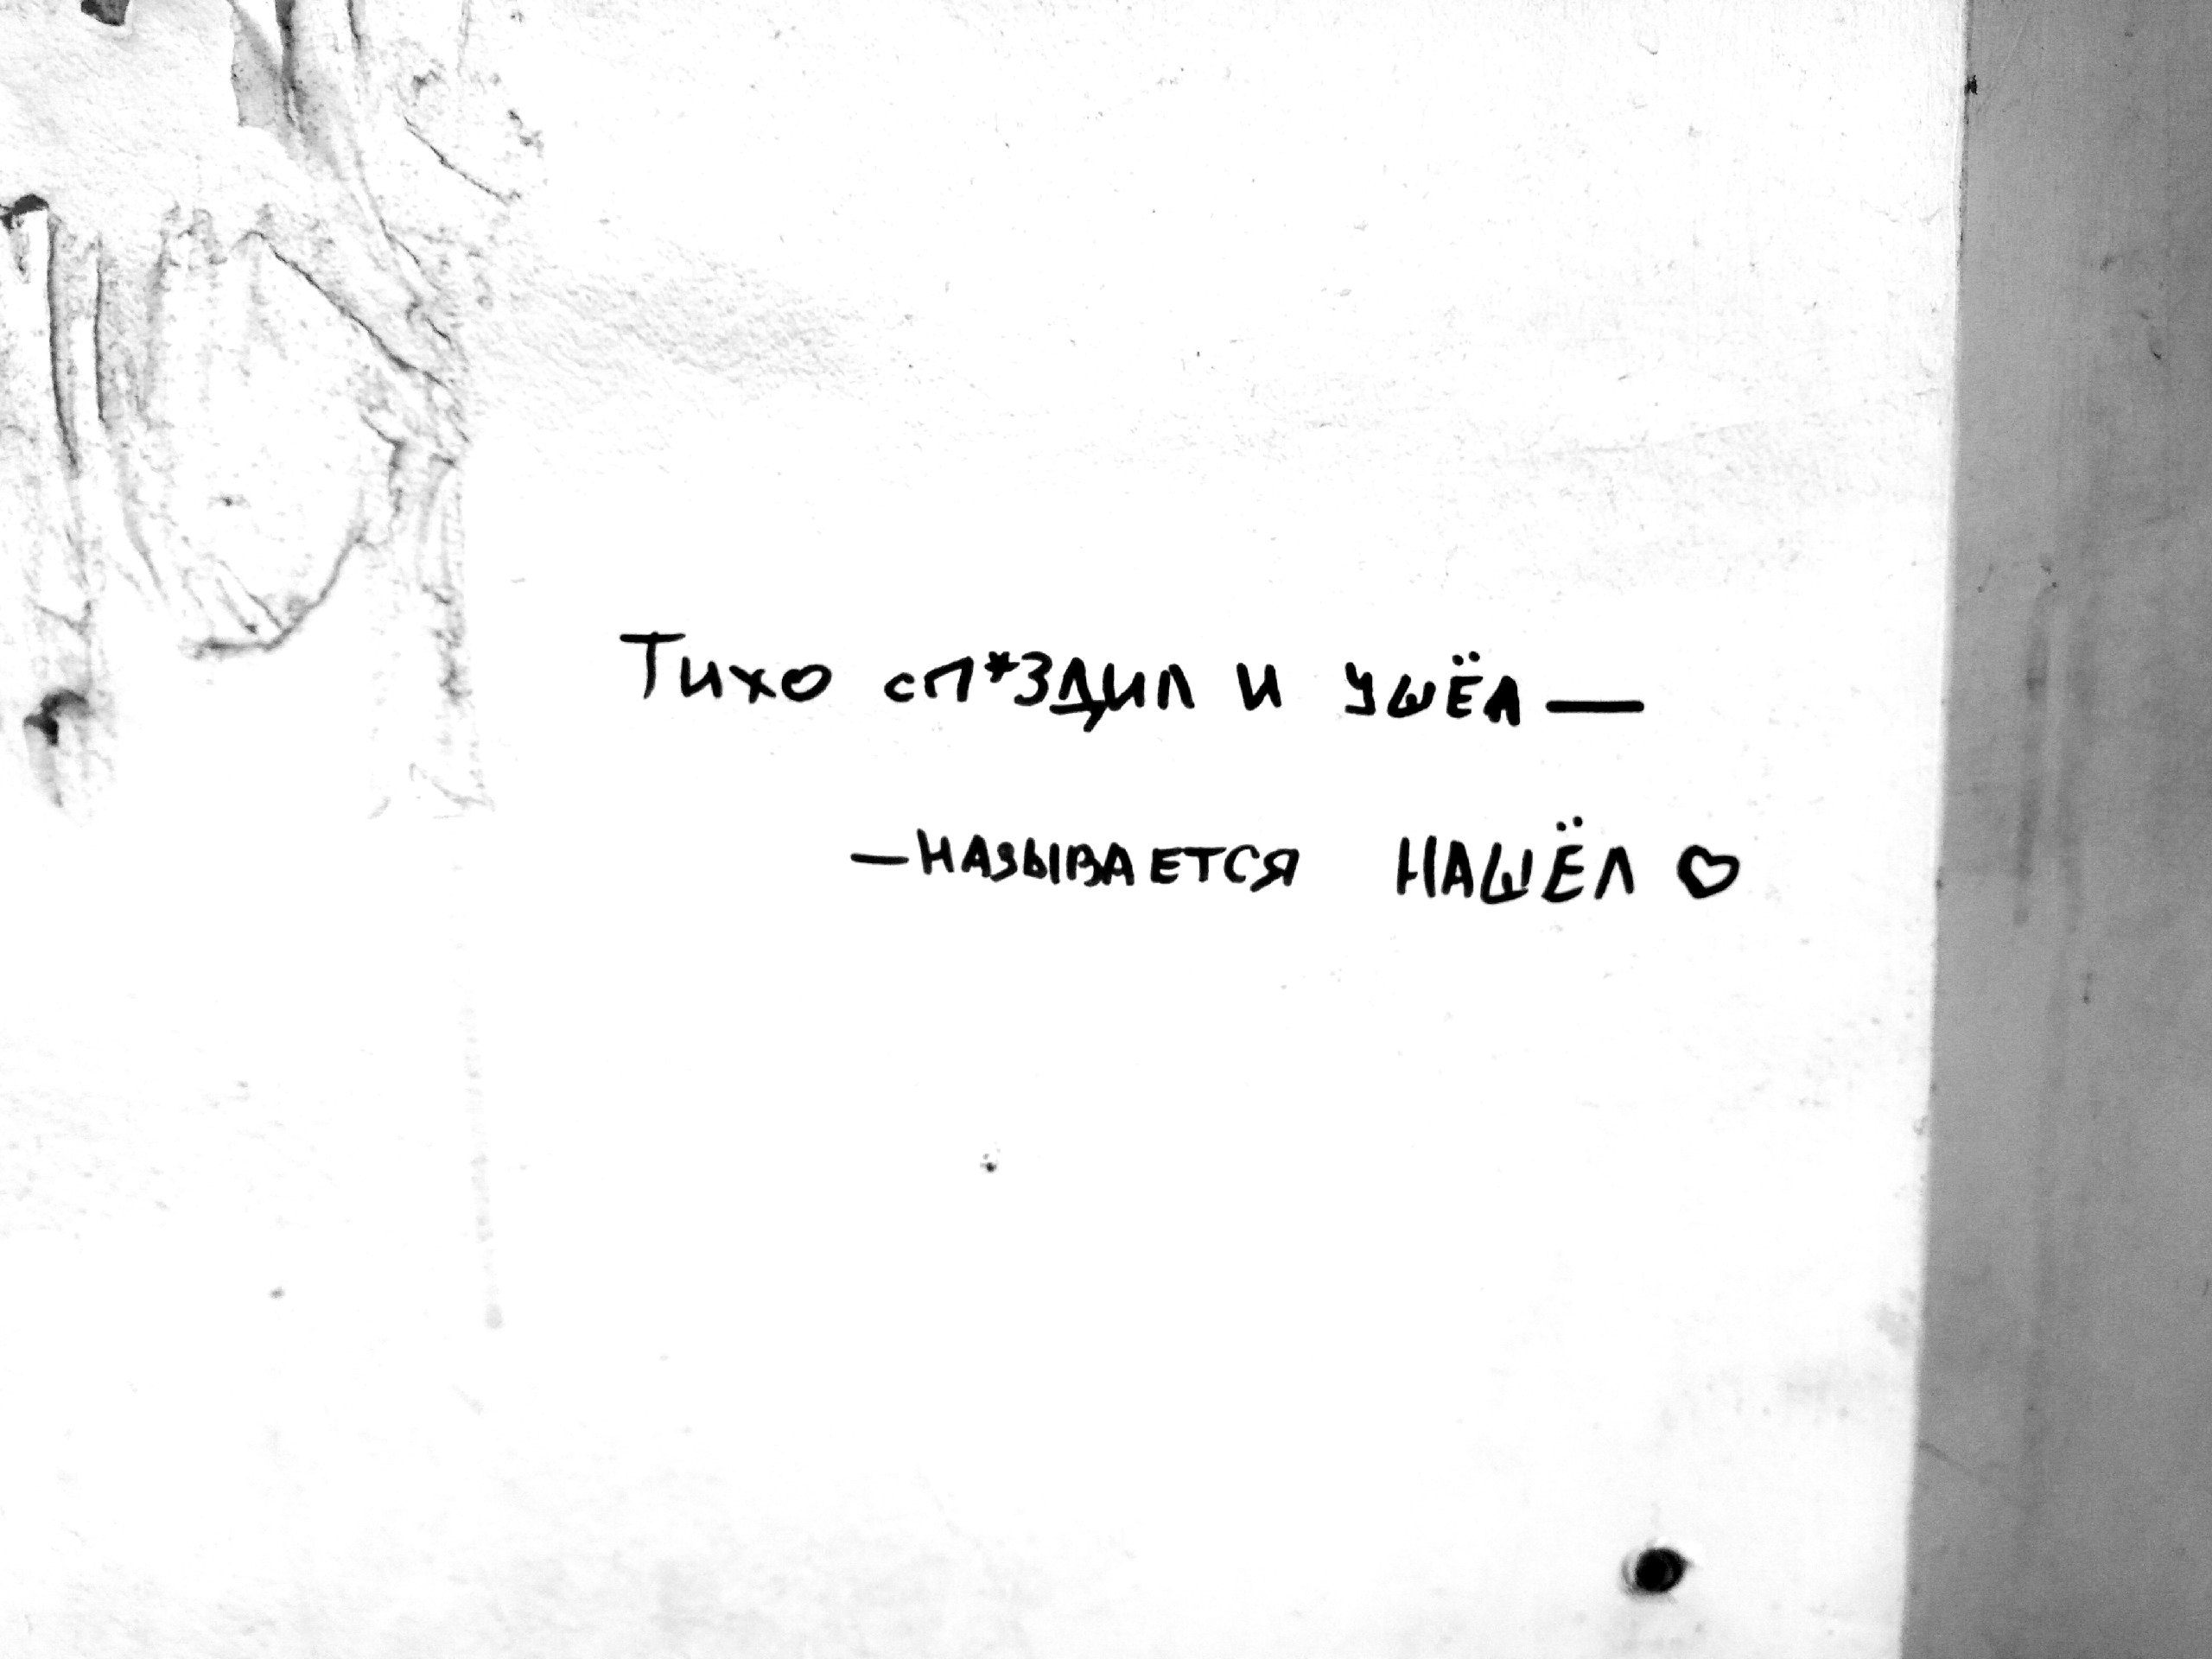 Тихо сп*здил и ушёл —
— называется НАШЁЛ ♡